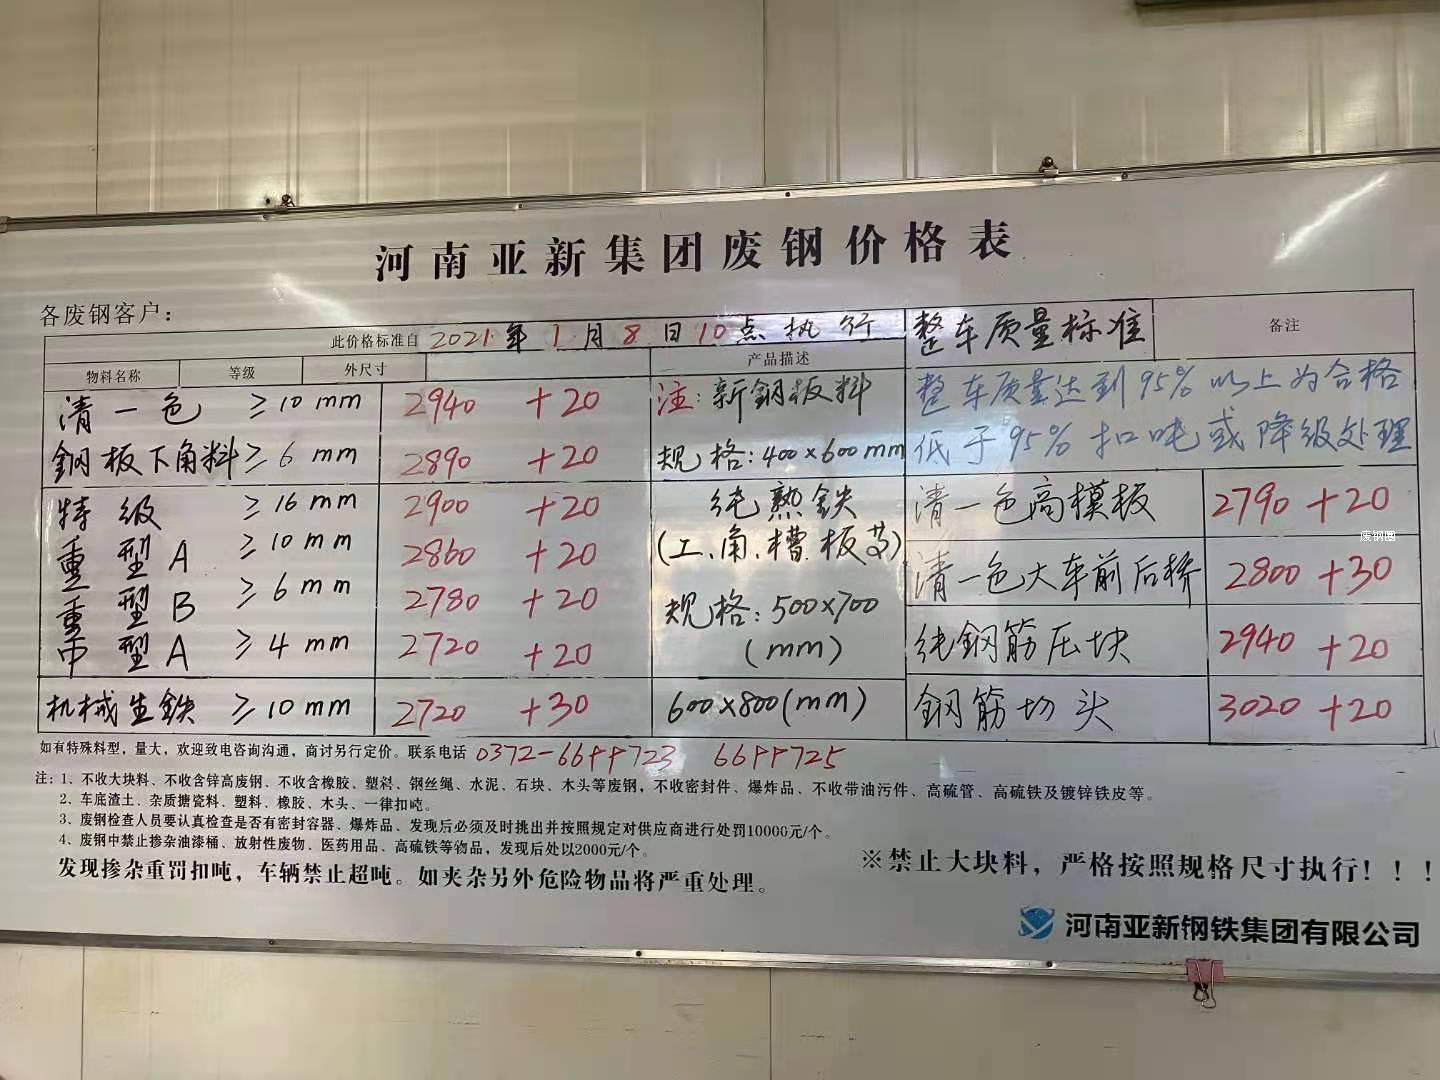 河南亚新集团废钢价格表
各废钢客户：
此价格标准自 2021年1月8日10点执行
整车质量标准 备注
物料名称 等级 外尺寸 产品描述
整车质量达到95%以上为合格
低于95%扣吨或降级处理
清一色 ≥10mm 2940 +20 注：新鋼板料
鋼板下角料 ≥6mm 2890 +20 规格：400×600mm
特级 ≥16mm 2900 +20 纯熟鉄
重型A ≥10mm 2860 +20 (工、角、槽、板等)
重型B ≥6mm 2780 +20 规格：500×700
中型A ≥4mm 2720 +20 (mm)
机械生鉄 ≥10mm 2720 +30 600×800(mm)
清一色高模板 2790 +20
废钢圈
清一色大车前后桥 2800 +30
纯鋼筋压块 2940 +20
鋼筋切头 3020 +20
如有特殊料型，量大，欢迎致电咨询沟通，商讨另行定价。联系电话 0372-6644723 6644725
注：1、不收大块料、不收含锌高废钢、不收含橡胶、塑料、钢丝绳、水泥、石块、木头等废钢，不收密封件、爆炸品、不收带油污件、高硫管、高硫铁及镀锌铁皮等。
2、车底渣土、杂质搪瓷料、塑料、橡胶、木头、一律扣吨。
3、废钢检查人员要认真检查是否有密封容器、爆炸品、发现后必须及时挑出并按照规定对供应商进行处罚10000元/个。
4、废钢中禁止掺杂油漆桶、放射性废物、医药用品、高硫铁等物品，发现后处以2000元/个。
发现掺杂重罚扣吨，车辆禁止超吨。如夹杂另外危险物品将严重处理。
※禁止大块料，严格按照规格尺寸执行！！！
河南亚新钢铁集团有限公司